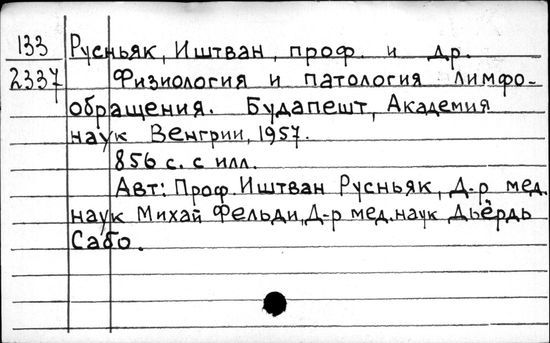 133 Русньяк, Иштван, проф. и др.
2337 Физиология и патология лимфо-
обращения. Будапешт, Академия
наук Венгрии, 1957.
856 с. с илл.
Авт: Проф. Иштван Русньяк, Д-р мед.
наук Михай Фельди, Д-р мед. наук Дьёрдь
Сабо.